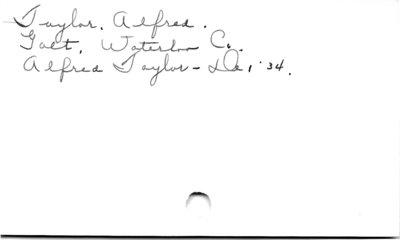 Taylor, Alfred.
Galt, Waterloo Co.
Alfred Taylor - D 1 '34.